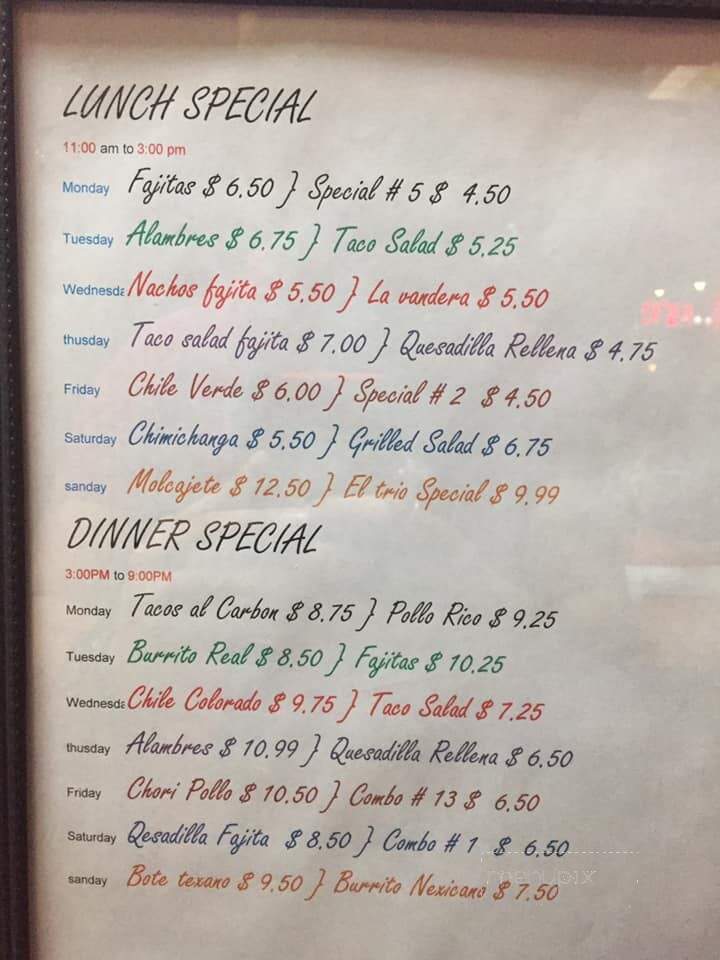 LUNCH SPECIAL
11:00 am to 3:00 pm
Monday Fajitas $ 6.50 } Special # 5 $ 4.50
Tuesday Alambres $ 6.75 } Taco Salad $ 5.25
Wednesda Nachos fajita $ 5.50 } La vandera $ 5.50
thusday Taco salad fajita $ 7.00 } Quesadilla Rellena $ 4.75
Friday Chile Verde $ 6.00 } Special # 2 $ 4.50
Saturday Chimichanga $ 5.50 } Grilled Salad $ 6.75
sanday Molcajete $ 12.50 } El trio Special $ 9.99
DINNER SPECIAL
3:00PM to 9:00PM
Monday Tacos al Carbon $ 8.75 } Pollo Rico $ 9.25
Tuesday Burrito Real $ 8.50 } Fajitas $ 10.25
Wednesda Chile Colorado $ 9.75 } Taco Salad $ 7.25
thusday Alambres $ 10.99 } Quesadilla Rellena $ 6.50
Friday Chori Pollo $ 10.50 } Combo # 13 $ 6.50
Saturday Qesadilla Fajita $ 8.50 } Combo # 1 $ 6.50
menupix
sanday Bote texano $ 9.50 } Burrito Nexicano $ 7.50